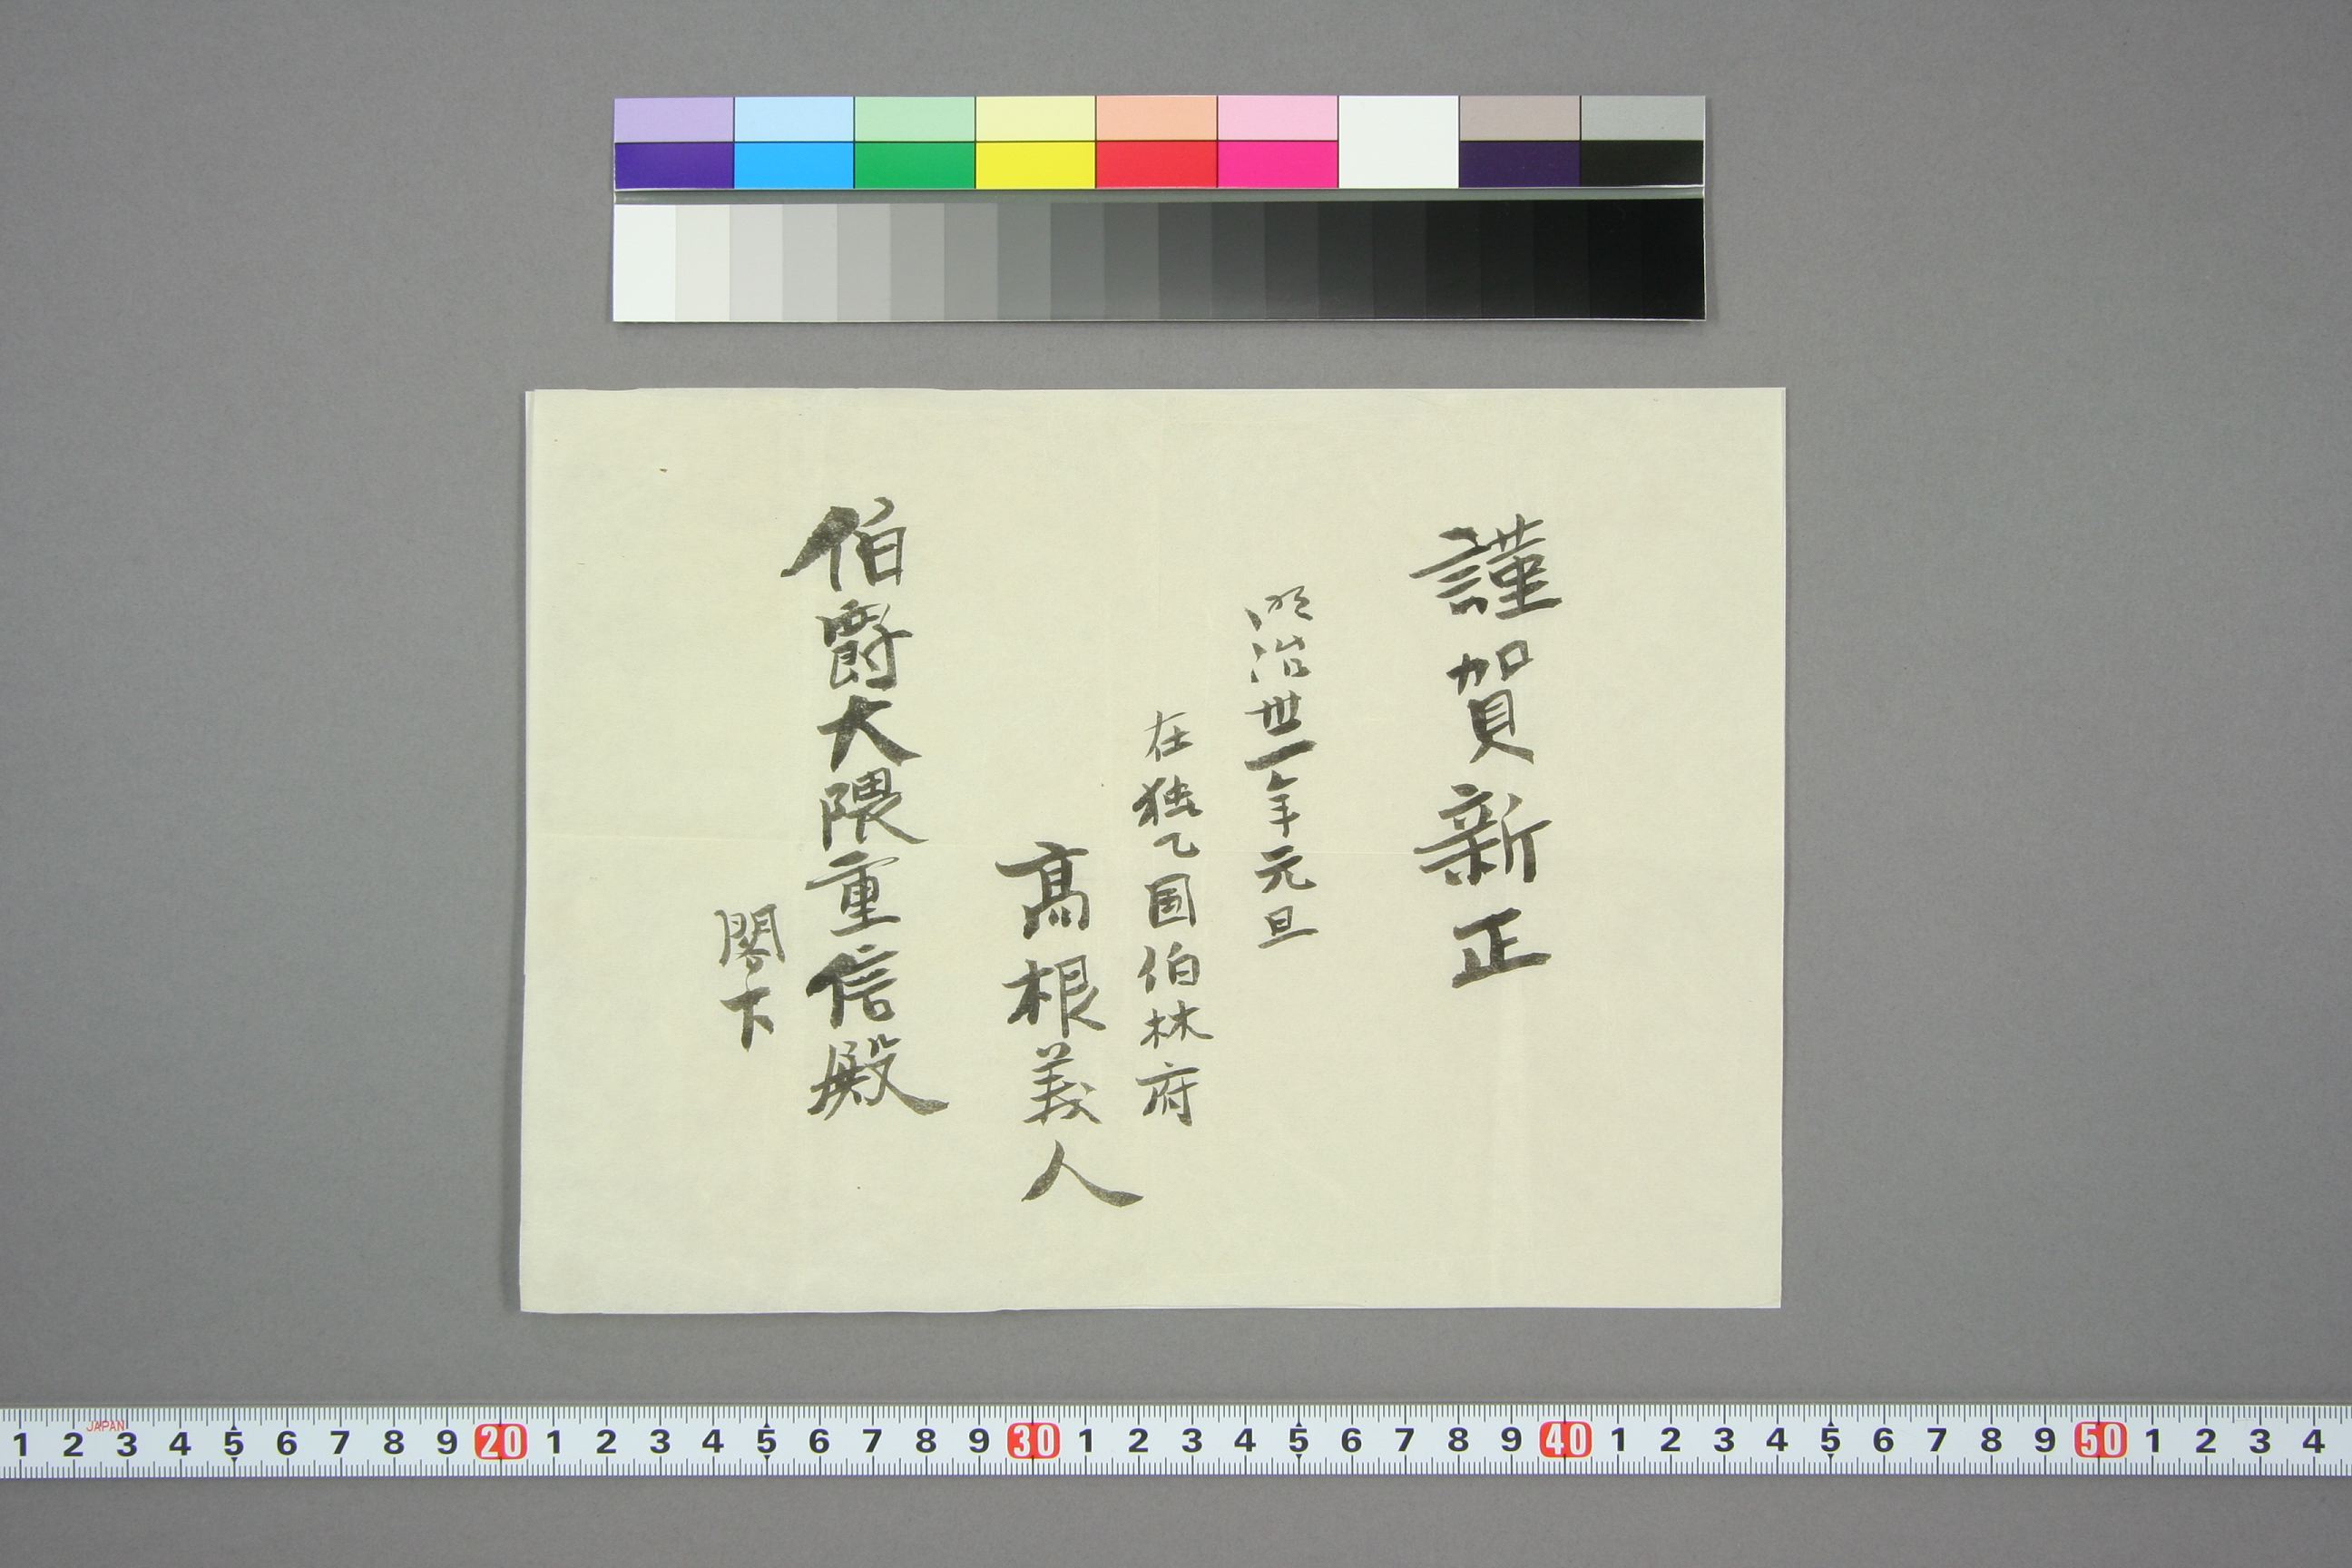 謹賀新正
明治丗一年元旦
在独乙国伯林府
髙根義人
伯爵大隈重信殿
閣下
1 2 3 4 5 6 7 8 9 20 1 2 3 4 5 6 7 8 9 30 1 2 3 4 5 6 7 8 9 40 1 2 3 4 5 6 7 8 9 50 1 2 3 4
JAPAN